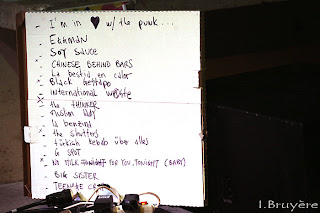 I'm in ♥ w/ the punk...
- Eatman
- SOY SAUCE
x CHINESE BEHIND BARS
- La bestia en calor
- Black Gestapo
- international
x the THINKER
- muslim lady
- la benzina
- the shutters
- türkish kebab über alles
- G SPOT
x NO MILK TONIGHT FOR YOU, TONIGHT (BABY)
- BIG SISTER
- TEENAGE
I.Bruyère